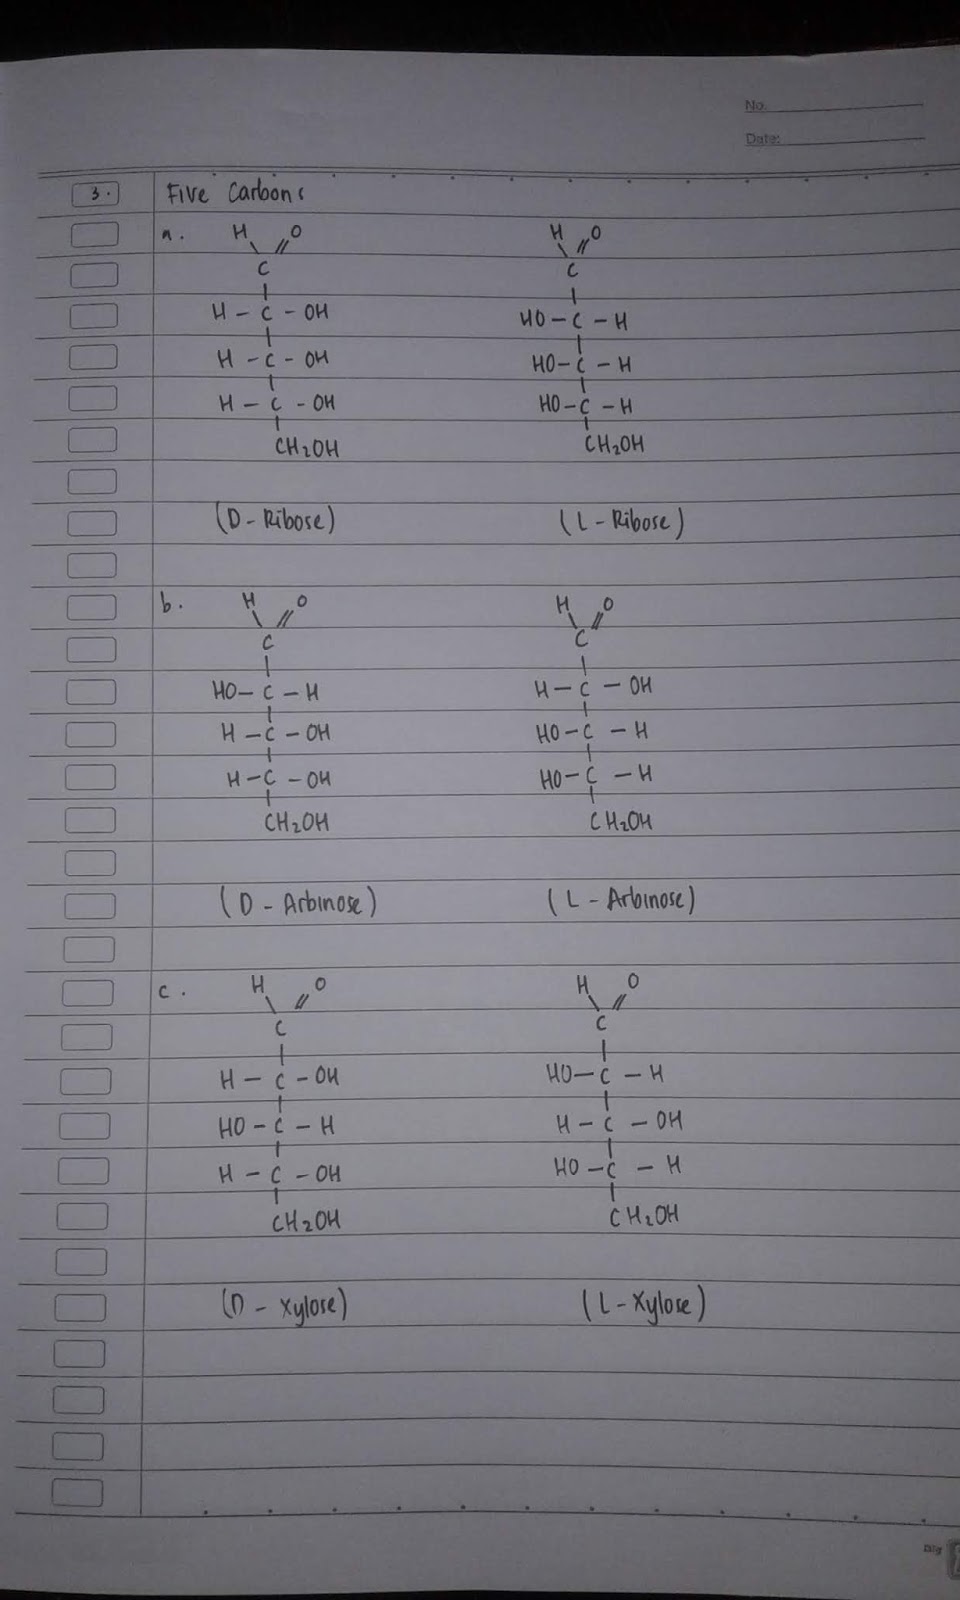 No.
Date:
3. Five Carbons
a. H O H O
C C
H - C - OH HO - C - H
H - C - OH HO - C - H
H - C - OH HO - C - H
CH₂OH CH₂OH
(D - Ribose) (L - Ribose)
b. H O H O
C C
HO - C - H H - C - OH
H - C - OH HO - C - H
H - C - OH HO - C - H
CH₂OH CH₂OH
(D - Arbinose) (L - Arbinose)
c. H O H O
C C
H - C - OH HO - C - H
HO - C - H H - C - OH
H - C - OH HO - C - H
CH₂OH CH₂OH
(D - Xylose) (L - Xylose)